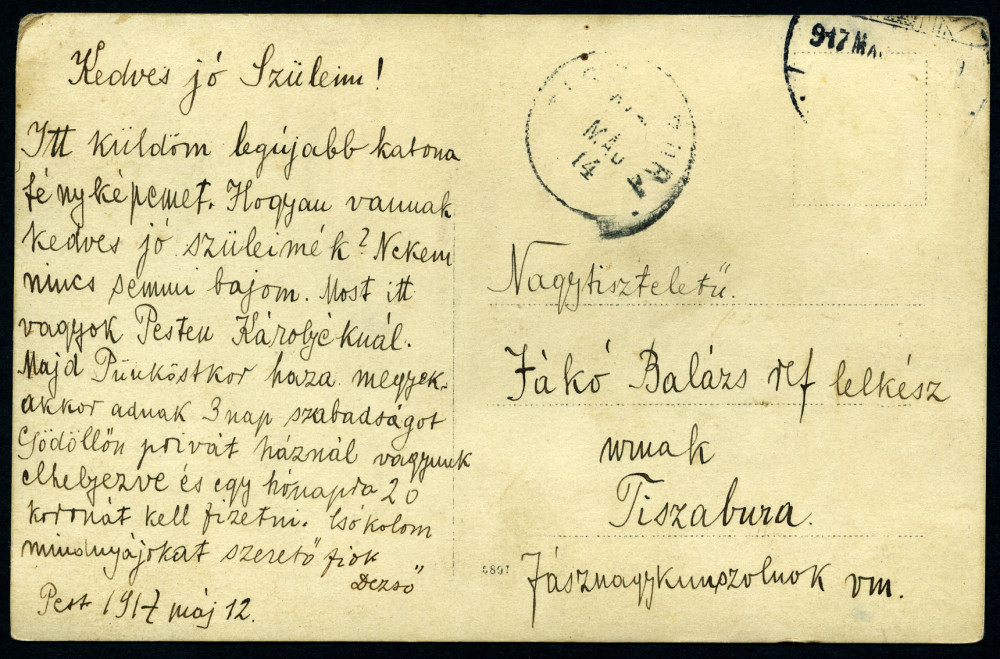 Kedves jó Szüleim!
Itt küldöm legújabb katona
fényképemet. Hogyan vannak
kedves jó szüleimék? Nekem
nincs semmi bajom. Most itt
vagyok Pesten Károlyéknál.
Majd Pünköstkor haza megyek,
akkor adnak 3 nap szabadságot
Gödöllőn privát háznál vagyunk
elhelyezve és egy hónapra 20
koronát kell fizetni. Csókolom
mindnyájokat szerető fiok
Dezső
Pest 1917 máj 12.
917 MÁ
MÁJ
14
BURA
Nagytiszteletű
Jákó Balázs ref lelkész
urnak
Tiszabura.
Jásznagykunszolnok vm.